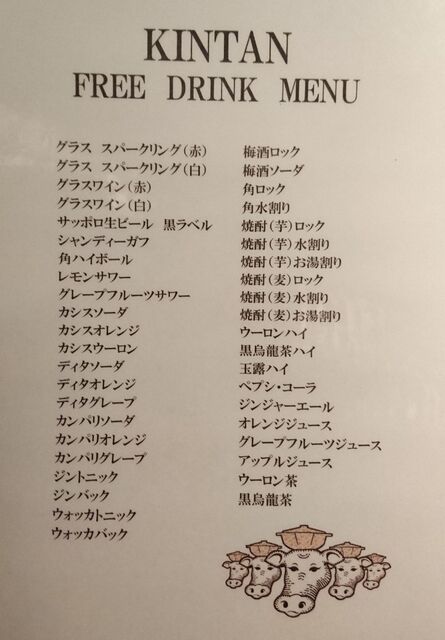 KINTAN
FREE DRINK MENU
グラス スパークリング(赤)
グラス スパークリング(白)
グラスワイン(赤)
グラスワイン(白)
サッポロ生ビール 黒ラベル
シャンディーガフ
角ハイボール
レモンサワー
グレープフルーツサワー
カシスソーダ
カシスオレンジ
カシスウーロン
ディタソーダ
ディタオレンジ
ディタグレープ
カンパリソーダ
カンパリオレンジ
カンパリグレープ
ジントニック
ジンバック
ウォッカトニック
ウォッカバック
梅酒ロック
梅酒ソーダ
角ロック
角水割り
焼酎(芋)ロック
焼酎(芋)水割り
焼酎(芋)お湯割り
焼酎(麦)ロック
焼酎(麦)水割り
焼酎(麦)お湯割り
ウーロンハイ
黒烏龍茶ハイ
玉露ハイ
ペプシ・コーラ
ジンジャーエール
オレンジジュース
グレープフルーツジュース
アップルジュース
ウーロン茶
黒烏龍茶